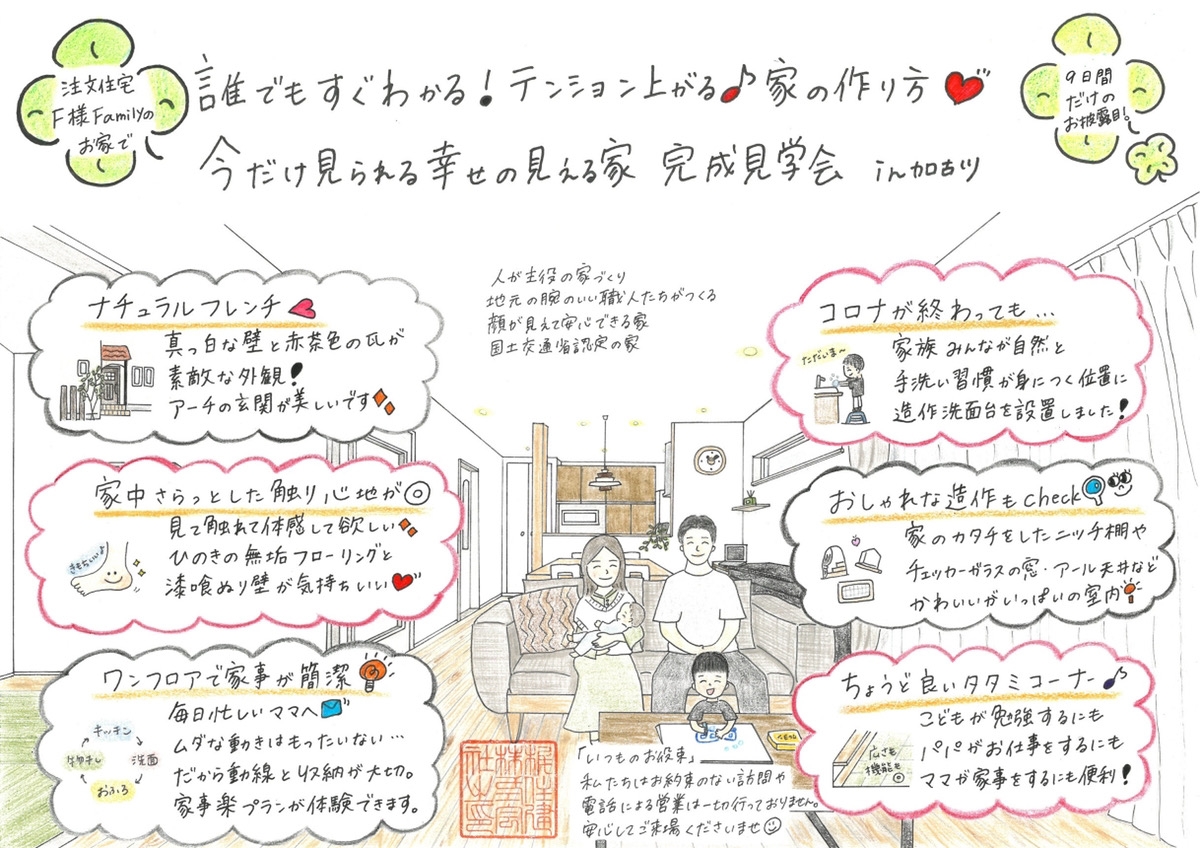 注文住宅
F様Familyの
お家で
誰でもすぐわかる!テンション上がる♪家の作り方
今だけ見られる幸せの見える家 完成見学会 in加古川
9日間
だけの
お披露目!
人が主役の家づくり
地元の腕のいい職人たちがつくる
顔が見えて安心できる家
国土交通省認定の家
ナチュラルフレンチ
真っ白な壁と赤茶色の瓦が
素敵な外観!
アーチの玄関が美しいです
家中さらっとした触り心地が◎
きもちいい♪
見て触れて体感して欲しい
ひのきの無垢フローリングと
漆喰ぬり壁が気持ちいい
ワンフロアで家事が簡潔
キッチン
洗面
おふろ
物干し
毎日忙しいママへ
ムダな動きはもったいない…
だから動線と収納が大切。
家事楽プランが体験できます。
コロナが終わっても…
ただいま〜
家族みんなが自然と
手洗い習慣が身につく位置に
造作洗面台を設置しました!
おしゃれな造作もcheck
家のカタチをしたニッチ棚や
チェッカーガラスの窓・アール天井など
かわいいがいっぱいの室内
ちょうど良いタタミコーナー♪
広さも
機能も◎
こどもが勉強するにも
パパがお仕事をするにも
ママが家事をするにも便利!
「いつものお役束」
私たちはお約束のない訪問や
電話による営業は一切行っておりません。
安心してご来場くださいませ